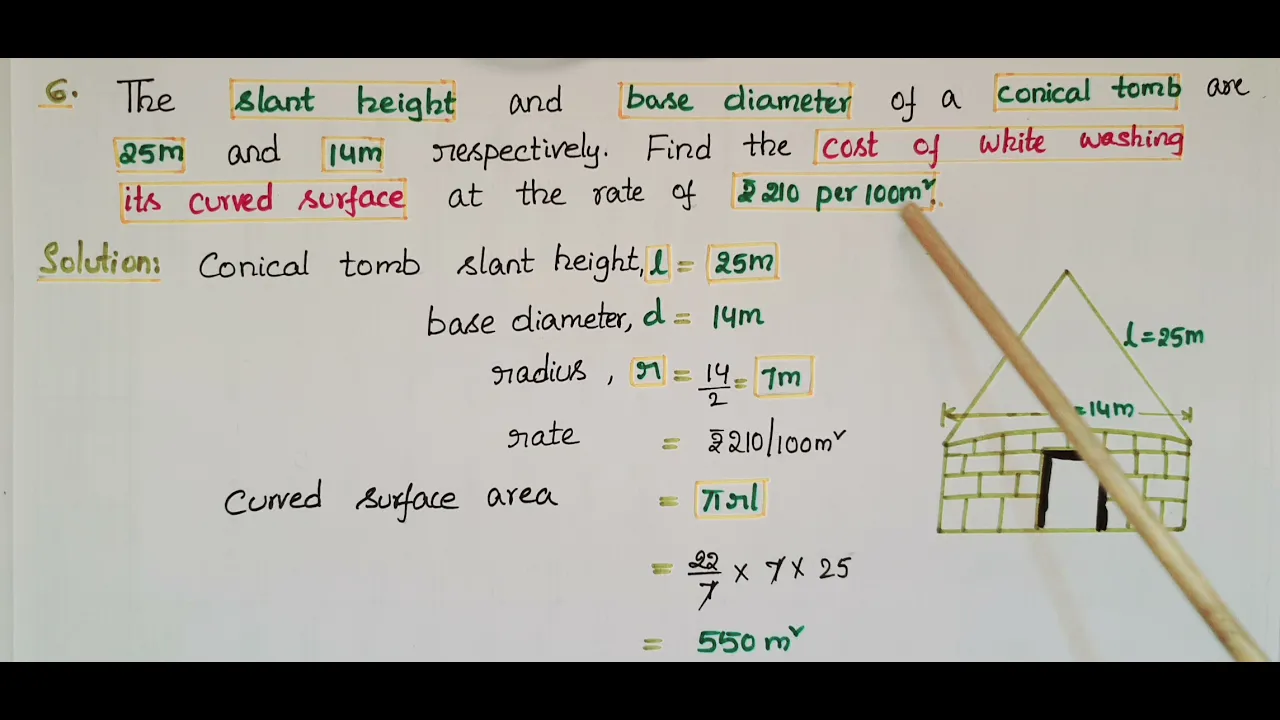 6. The slant height and base diameter of a conical tomb are
25m and 14m respectively. Find the cost of white washing
its curved surface at the rate of ₹210 per 100m².
Solution: Conical tomb slant height, l = 25m
base diameter, d = 14m
radius, r = 14/2 = 7m
rate = ₹210/100m²
Curved surface area = πrl
= 22/7 × 7 × 25
= 550 m²
l=25m
=14m